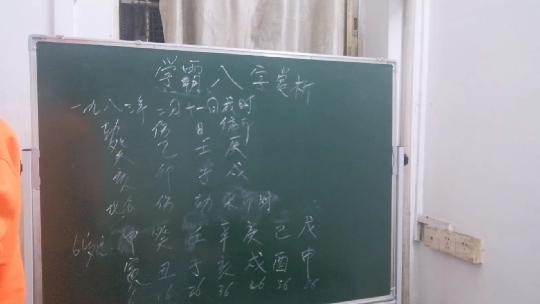 学霸八字赏析
一九八二年 二月十一日戌时
劫 伤 日
癸 乙 壬 庚
亥 卯 子 戌
伤 劫
甲 癸 壬 辛 庚 己 戊
寅 丑 子 亥 戌 酉 申
16 26 36 46 56